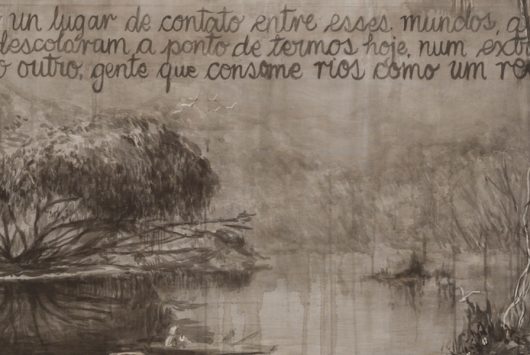 un lugar de contato entre esses mundos,
descolaram a ponto de termos hoje, num
o outro, gente que consome rios como um